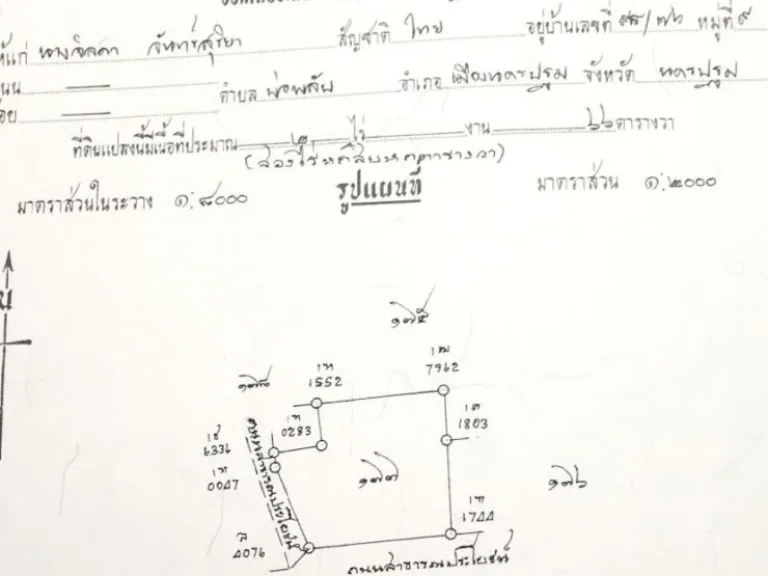 ให้แก่ นางจิลดา จันทร์สุริยา สัญชาติ ไทย อยู่บ้านเลขที่ ๙๙/๗๖ หมู่ที่ ๙
ถนน — ตำบล บ่อพลับ อำเภอ เมืองนครปฐม จังหวัด นครปฐม
ซอย —
ที่ดินแปลงนี้มีเนื้อที่ประมาณ ๒ ไร่ งาน ๖๖ ตารางวา
(สองไร่หกสิบหกตารางวา)
มาตราส่วนในระวาง ๑:๘๐๐๐ รูปแผนที่ มาตราส่วน ๑:๒๐๐๐
น
๑๗๕
1552
7962
๑๗๘
0283
1803
6336
0047
๑๗๗
๑๗๖
1744
4076
ถนนสาธารณประโยชน์
ถนนสาธารณประโยชน์